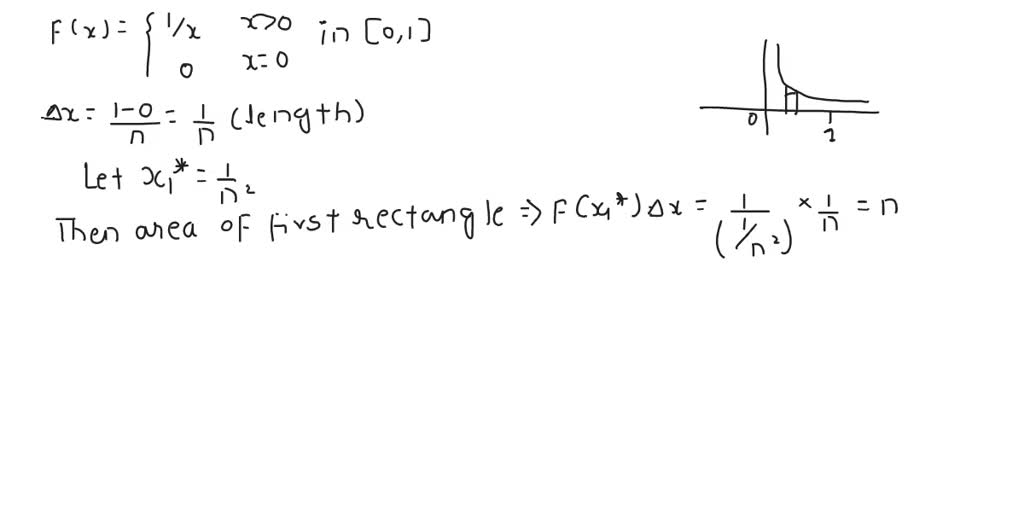 F(x) = { 1/x x>0 in [0,1]
0 x=0
Δx = (1-0)/n = 1/n (length)
0 1
Let x₁* = 1/n²
Then area of first rectangle ⇒ F(x₁*) Δx = 1/(1/n²) × 1/n = n